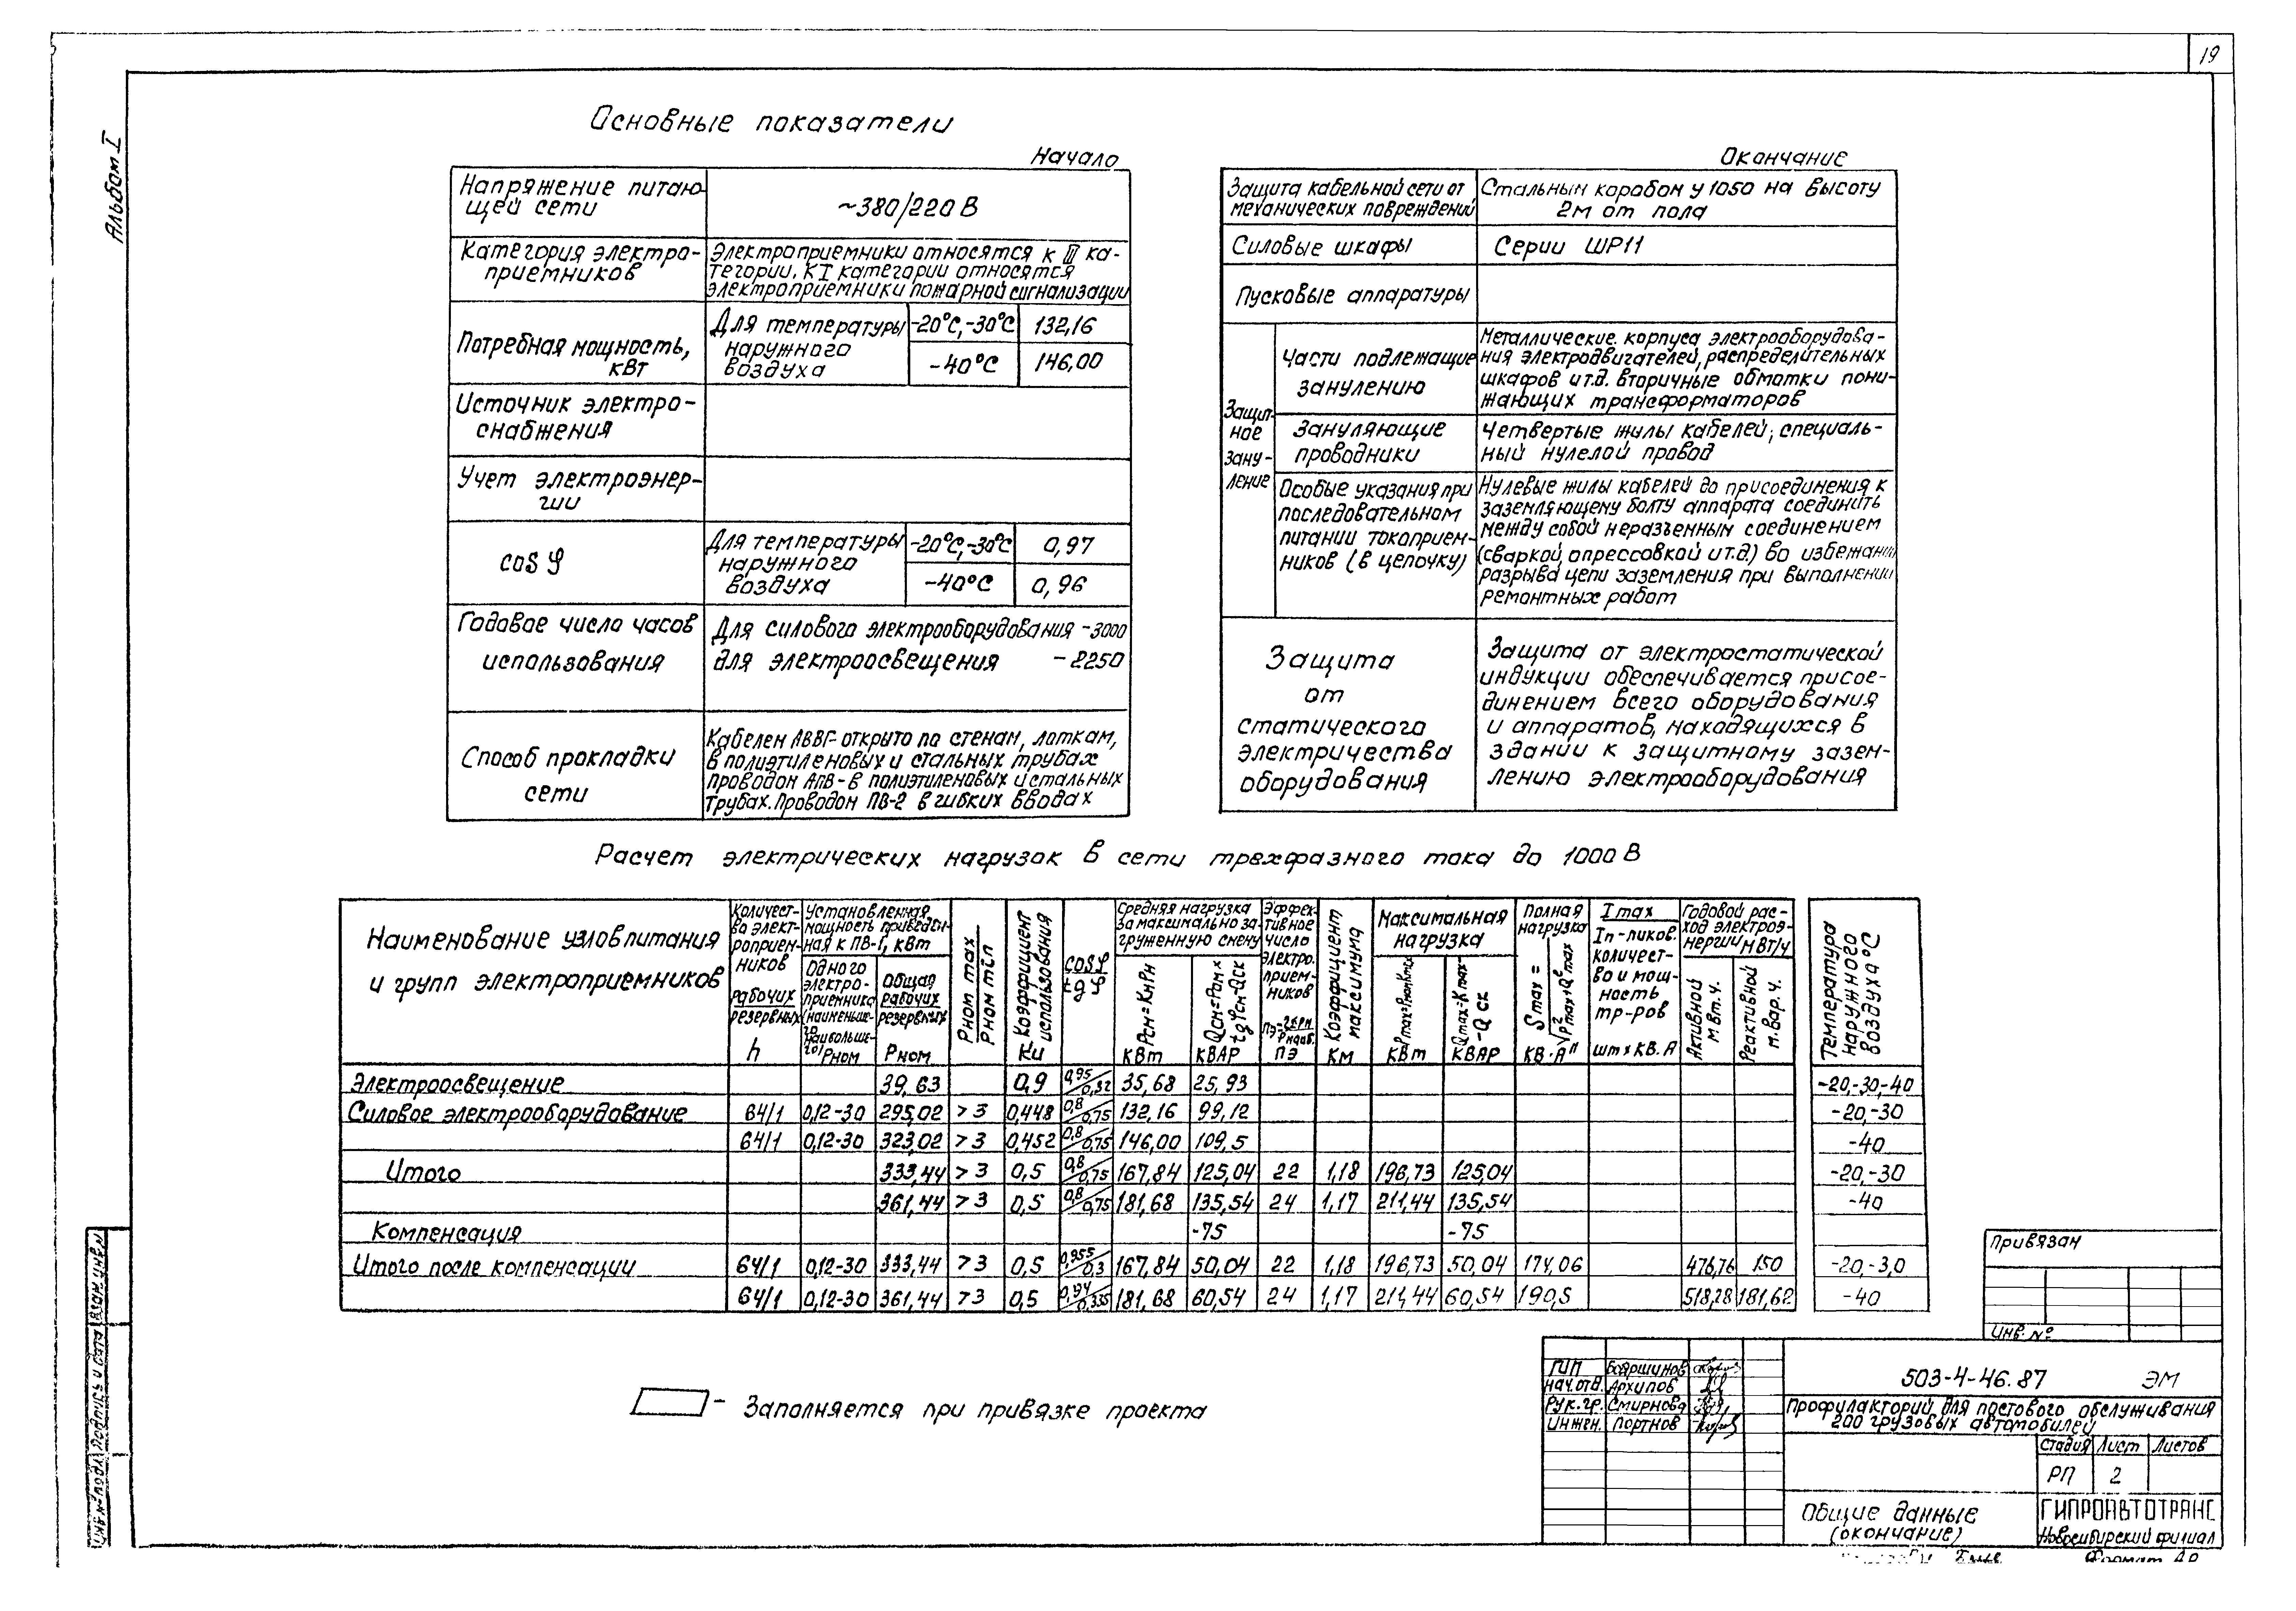 19
Альбом I
Основные показатели
Начало
Напряжение питаю-
щей сети
~380/220 В
Категория электро-
приемников
Электроприемники относятся к III ка-
тегории. К I категории относятся
электроприемники пожарной сигнализации
Потребная мощность,
кВт
Для температуры
наружного
воздуха
-20°С,-30°С
132,16
-40°С
146,00
Источник электро-
снабжения
Учет электроэнер-
гии
cos φ
Для температуры
наружного
воздуха
-20°С,-30°С
0,97
-40°С
0,96
Годовое число часов
использования
Для силового электрооборудования -3000
для электроосвещения -2250
Способ прокладки
сети
Кабелем АВВГ-открыто по стенам, лоткам,
в полиэтиленовых и стальных трубах
Проводом АПВ-в полиэтиленовых и стальных
трубах. Проводом ПВ-2 в гибких вводах
Окончание
Защита кабельной сети от
механических повреждений
Стальным коробом У1050 на высоту
2м от пола
Силовые шкафы
Серии ШР11
Пусковые аппаратуры
Защит-
ное
зану-
ление
Части подлежащие
занулению
Металлические корпуса электрооборудова-
ния электродвигателей, распределительных
шкафов и т.д. вторичные обмотки пони-
жающих трансформаторов
Зануляющие
проводники
Четвертые жилы кабелей, специаль-
ный нулелой провод
Особые указания при
последовательном
питании токоприем-
ников (в цепочку)
Нулевые жилы кабелей до присоединения к
заземляющему болту аппарата соединить
между собой неразъемным соединением
(сваркой, опрессовкой и т.д.) во избежании
разрыва цепи заземления при выполнении
ремонтных работ
Защита
от
статического
электричества
оборудования
Защита от электростатической
индукции обеспечивается присое-
динением всего оборудования
и аппаратов, находящихся в
здании к защитному зазем-
лению электрооборудования
Расчет электрических нагрузок в сети трехфазного тока до 1000 В
Наименование узлов питания
и групп электроприемников
Количест-
во элект-
роприем-
ников
рабочих
резервных
n
Установленная
мощность приведен-
ная к ПВ-1, кВт
Одного
электро-
приемника
наименьше-
го
наибольше-
го Рном
Общая
рабочих
резервных
Рном
Рном max
Рном min
Коэффициент
использования
Ки
cos φ
tg φ
Средняя нагрузка
за максимально за-
груженную смену
Рсм=КиРн
кВт
Qсм=Рсм×
tgφсм-Qск
КВАР
Эффек-
тивное
число
электро.
прием-
ников
ПЭ
Коэффициент
максимума
Км
Максимальная
нагрузка
кВт
-Qск
КВАР
Полная
нагрузка
Smax=
√P²max+Q²max
КВ·А
Imax
Iп-пиков.
количест-
во и мощ-
ность
тр-ров
шт×КВ.А
Годовой рас-
ход электроэ-
нергии МВт/ч
Активной
Мвт.ч.
Реактивной
м.вар.ч.
Температура
наружного
воздуха °С
Электроосвещение 39,63 0,9 0,95/0,32 35,68 25,93 -20,-30,-40
Силовое электрооборудование 64/1 0,12-30 295,02 >3 0,448 0,8/0,75 132,16 99,12 -20,-30
64/1 0,12-30 323,02 >3 0,452 0,8/0,75 146,00 109,5 -40
Итого 333,44 >3 0,5 0,8/0,75 167,84 125,04 22 1,18 196,73 125,04 -20,-30
361,44 >3 0,5 0,8/0,75 181,68 135,54 24 1,17 211,44 135,54 -40
Компенсация -75 -75
Итого после компенсации 64/1 0,12-30 333,44 >3 0,5 0,955/0,3 167,84 50,04 22 1,18 196,73 50,04 174,06 476,76 150 -20,-3,0
64/1 0,12-30 361,44 >3 0,5 0,94/0,335 181,68 60,54 24 1,17 211,44 60,54 190,5 518,28 181,62 -40
- Заполняется при привязке проекта
Привязан
Инв.№
ГИП Бояршинов
Нач.отд. Архипов
Рук.гр. Смирнова
Инжен. Портнов
503-4-46.87 ЭМ
Профилакторий для постового обслуживания
200 грузовых автомобилей
Стадия Лист Листов
РП 2
Общие данные
(окончание)
ГИПРОАВТОТРАНС
Новосибирский филиал
Формат А2
Инв.№ подл. Подпись и дата Взам.инв.№